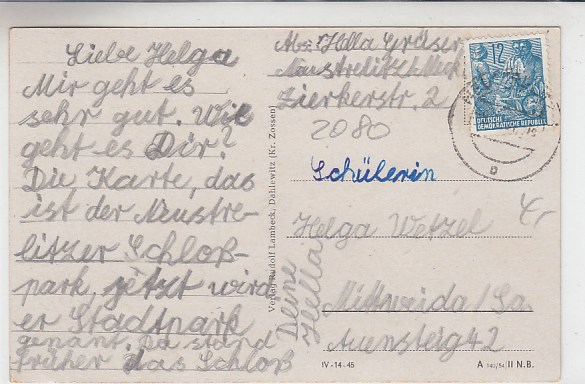 Liebe Helga
Mir geht es
sehr gut. Wie
geht es Dir?
Die Karte, das
ist der Neustre-
litzer Schloß-
park, jetzt wird
er Stadtpark
genant. Da stand
früher das Schloß
Deine
Hella
Verlag Rudolf Lambeck, Dahlewitz (Kr. Zossen)
Abs: Hella Gräser
Neustrelitz/Meck
Zierkerstr. 2
2080
12
DEUTSCHE
DEMOKRATISCHE REPUBLIK
b
Schülerin
Helga Wetzel
Mittweida/Sa.
Auensteig 42
IV-14-45
A 140/54 II N.B.